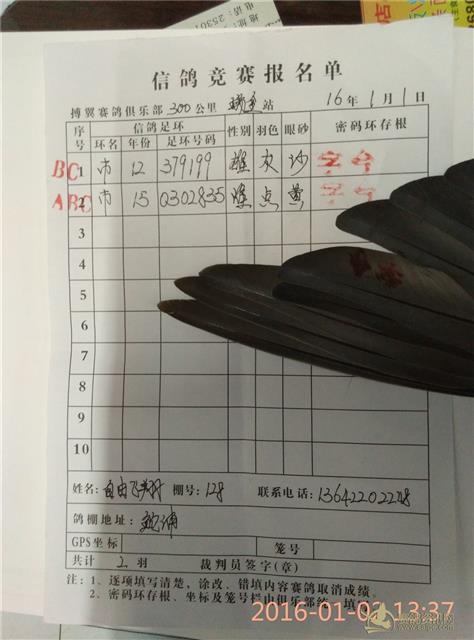 信鸽竞赛报名单
搏翼赛鸽俱乐部 300 公里 站 16 年 1 月 1 日
序号 信鸽足环 性别 羽色 眼砂 密码环存根
环名 年份 足环号码
BC 1 市 12 379199 雄 灰 沙
ABC 2 市 15 0302835 雄 点 黄
3
4
5
6
7
8
9
10
姓名: 自由飞翔 棚号: 128 联系电话: 13642202248
鸽棚地址:
GPS坐标 笼号
共计 2 羽 裁判员签字(章)
注: 1、逐项填写清楚，涂改、错填内容赛鸽取消成绩。
2、密码环存根、坐标及笼号栏由俱乐部统一填
2016-01-01 13:37